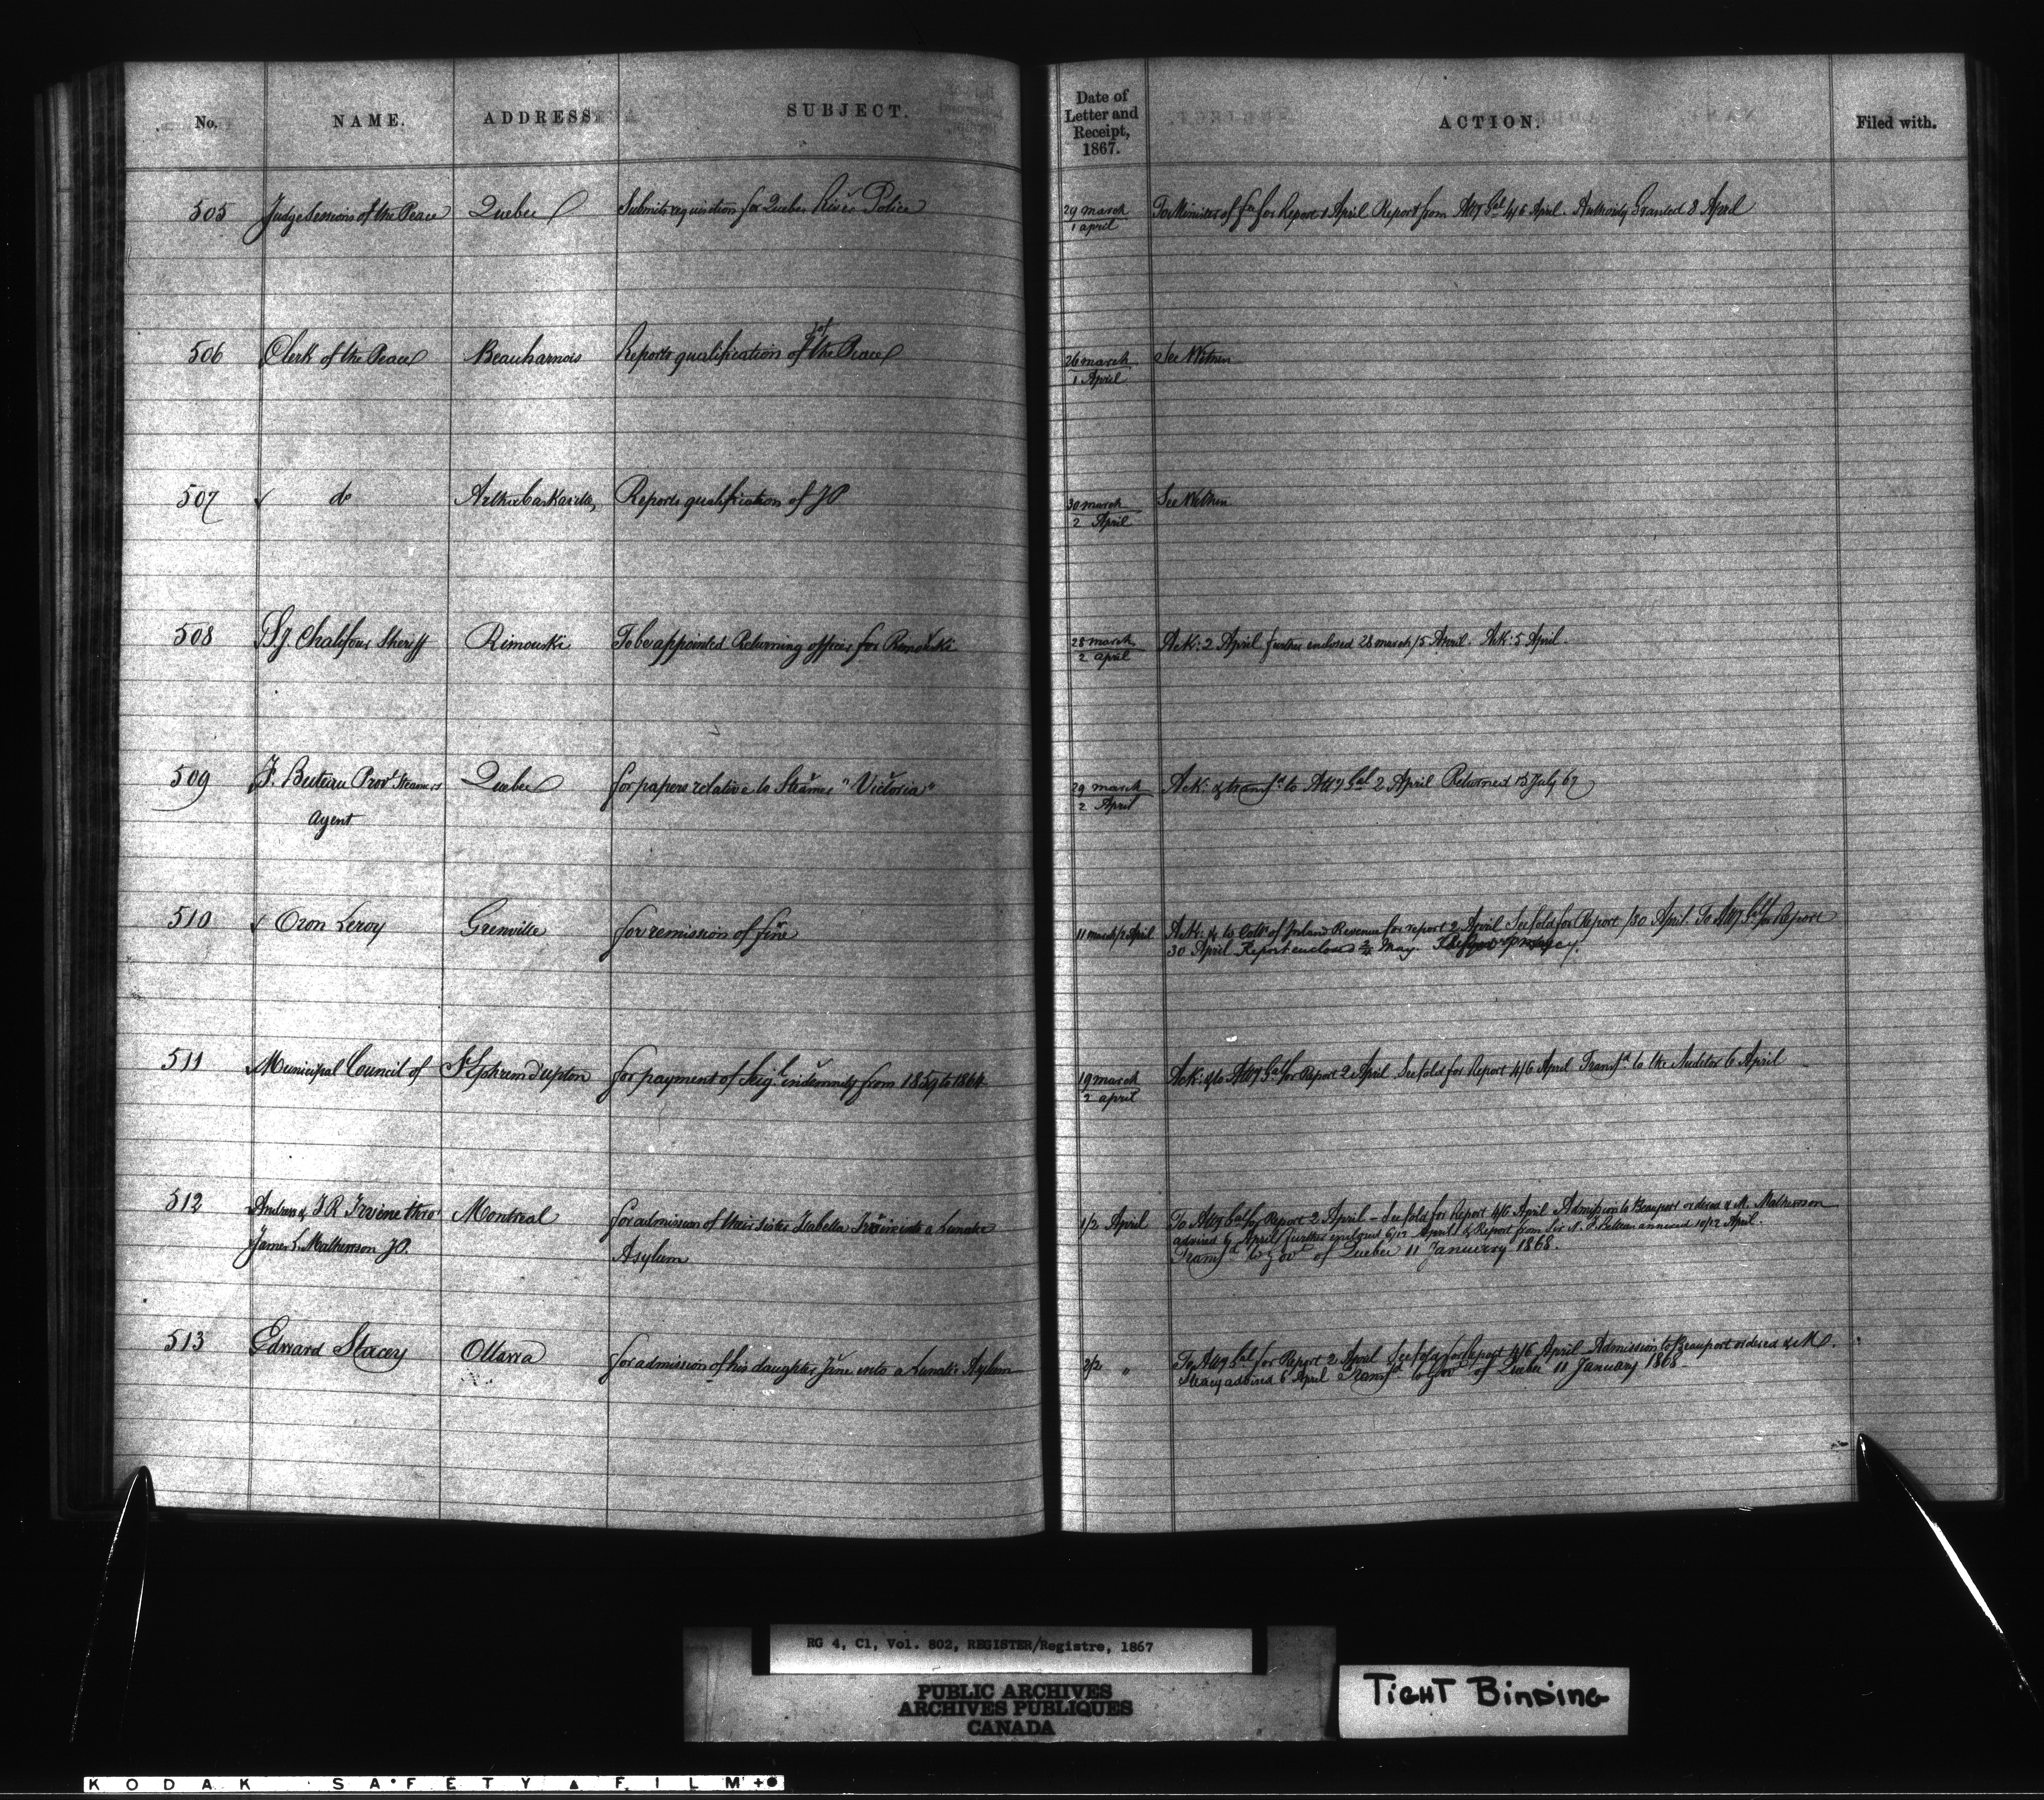 No. NAME. ADDRESS. SUBJECT. Date of Letter and Receipt, 1867. ACTION. Filed with.
505 Judge Sessions of the Peace Quebec Submits requisition for Quebec River Police 29 march 1 april To Minister of for Report 1 April Report from Atty Gal 4/6 April. Authority Granted 8 April
506 Clerk of the Peace Beauharnois Reports qualification of J of the Peace 26 march 1 April See Within
507 do Arthabaskaville Reports qualification of JP 30 march 2 April See Within
508 Chalifour Sheriff Rimouski To be appointed Returning officer for Rimouski 28 march 2 april Ack: 2 April further enclosed 28 march/5 April. Ack: 5 April.
509 F. Buteau Provl Steamers Quebec for papers relative to Steamer "Victoria" 29 march 2 April Ack: & transfd to Atty Gal 2 April Returned 15 July 67
Agent
510 Oron Leroy Grenville for remission of fine 11 march/2 April Ack: & to Collr of Inland Revenue for report 2 April See fold for Report /30 April To Atty Gal for Report
30 April Report enclosed 2/4 May.
511 Municipal Council of St Ephrem d'upton for payment of Seigl indemnity from 1859 to 1864 19 march 2 april Ack: & to Atty Gal for Report 2 April See fold for Report 4/6 April Transfd to the Auditor 6 April
512 Andrew & J R Irvine thro' Montreal for admission of their sister Isabella Irvine into a Lunatic 1/2 April To Atty Gal for Report 2 April – See fold for Report 4/6 April Admission to Beauport ordered & M. Mathewson
James L. Mathewson JP. Asylum advised 6 April further enclosed 6/12 April & Report from Sir N. F. Belleau annexed 10/12 April.
Transfd to Govt of Quebec 11 January 1868.
513 Edward Stacey Ottawa for admission of his daughter Jane into a Lunatic Asylum 2/2 " To Atty Gal for Report 2 April See fold for Report 4/6 April Admission to Beauport ordered & M.
Stacey advised 6 April Transfd to Govt of Quebec 11 January 1868
RG 4, C1, Vol. 802, REGISTER/Registre, 1867
PUBLIC ARCHIVES
ARCHIVES PUBLIQUES
CANADA
TIGHT BINDING
KODAK SAFETY FILM